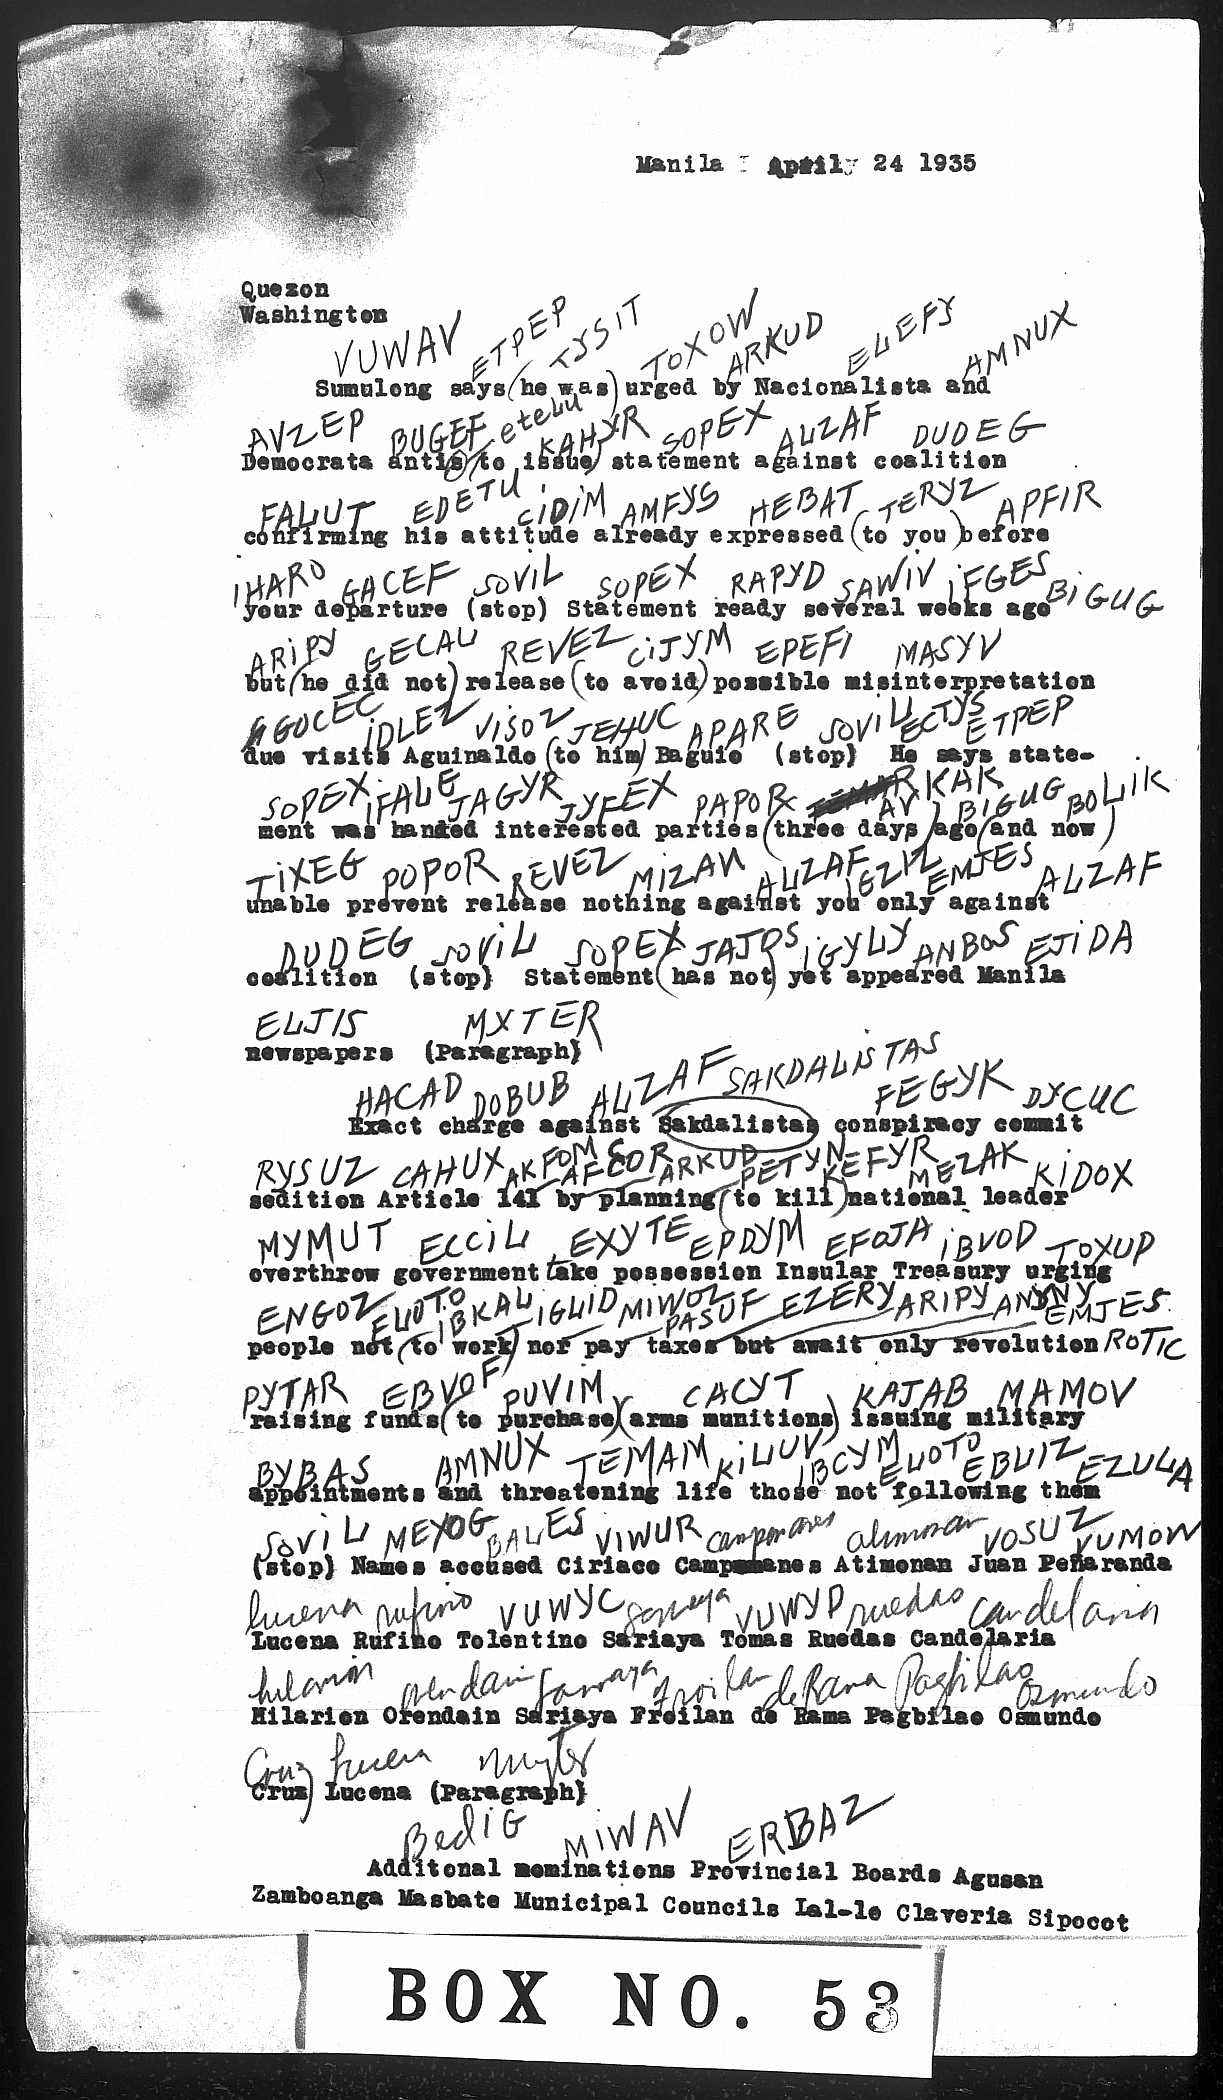 Manila April 24 1935
Quezon
Washington
VUWAV ETPEP TYSIT TOXOW ARKUD ELEFY AMNUX
Sumulong says (he was) urged by Nacionalista and
AVZEP BUGEF etelu KAHYR SOPEX ALZAF DUDEG
Democrata antis (to issue) statement against coalition
FALUT EDETU CIDIM AMFYS HEBAT TERYZ APFIR
confirming his attitude already expressed (to you) before
IHARO GACEF SOVIL SOPEX RAPYD SAWIV IFGES BIGUG
your departure (stop) Statement ready several weeks ago
ARIPY GECAL REVEZ CIJYM EPEFI MASYV
but (he did not) release (to avoid) possible misinterpretation
GOCEC IDLEZ VISOZ JEHUC APARE SOVIL ECTYS ETPEP
due visits Aguinaldo (to him) Baguio (stop) He says state-
SOPEX IFALE JAGYR JYFEX PAPOR ARKAK BIGUG BOLIK
ment was handed interested parties (three days) ago (and now)
TIXEG POPOR REVEZ MIZAN ALZAF IGZIZ EMJES ALZAF
unable prevent release nothing against you only against
DUDEG SOVIL SOPEX JAJOS IGYLY ANBOS EJIDA
coalition (stop) Statement (has not) yet appeared Manila
ELJIS MXTER
newspapers (Paragraph)
HACAD DOBUB ALZAF SAKDALISTAS FEGYK DYCUC
Exact charge against Sakdalistas conspiracy commit
RYSUZ CAHUX AKFOM AFCOR ARKUD PETYN KEFYR MEZAK KIDOX
sedition Article 141 by planning (to kill) national leader
MYMUT ECCIL EXYTE EPDYM EFOJA IBVOD TOXUP
overthrow government take possession Insular Treasury urging
ENGOZ ELOTO IBKAL IGLID MIWOZ PASUF EZERY ARIPY ANYNY EMJES
people not (to work) nor pay taxes but await only revolution ROTIC
PYTAR EBVOF PUVIM CACYT KAJAB MAMOV
raising funds (to purchase) (arms munitions) issuing military
BYBAS AMNUX TEMAM KILUV IBCYM ELOTO EBLIZ EZULA
appointments and threatening life those not following them
SOVIL MEYOG BALES VIWUR campomanes atimonan VOSUZ VUMOW
(stop) Names accused Ciriaco Campomanes Atimonan Juan Peñaranda
lucena rufino VUWYC sariaya VUWYP ruedas candelaria
Lucena Rufino Tolentino Sariaya Tomas Ruedas Candelaria
hilarion orendain sariaya froilan de Rama Pagbilao Osmundo
Hilarion Orendain Sariaya Froilan de Rama Pagbilao Osmundo
Cruz lucena myter
Cruz Lucena (Paragraph)
BedIG MIWAV ERBAZ
Additonal nominations Provincial Boards Agusan
Zamboanga Masbate Municipal Councils Lal-lo Claveria Sipocot
BOX NO. 53